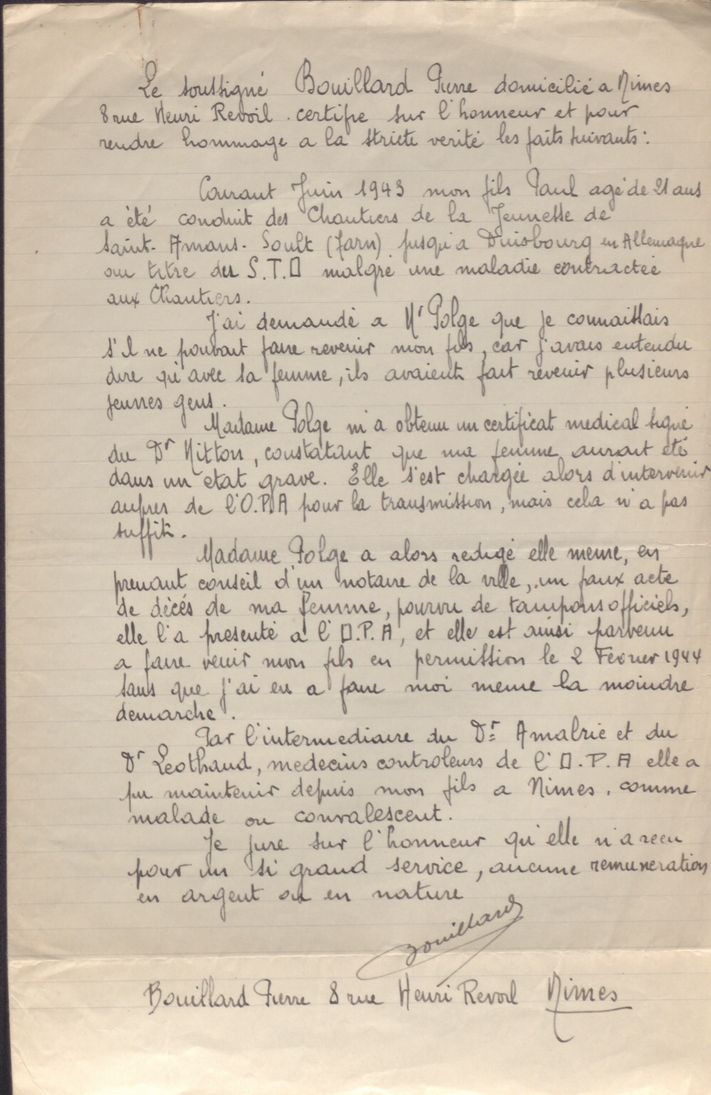 Le soussigné Bouillard Pierre domicilié a Nimes
8 rue Henri Revoil. certifie sur l'honneur et pour
rendre hommage a la stricte verité les faits suivants:
Courant Juin 1943 mon fils Paul agé de 21 ans
a été conduit des Chantiers de la Jeunesse de
Saint-Amans-Soult (Tarn) jusqu'a Duisbourg en Allemagne
au titre du S.T.O malgré une maladie contractée
aux Chantiers.
J'ai demandé a Mr Polge que je connaissais
s'il ne pouvait faire revenir mon fils, car j'avais entendu
dire qu'avec sa femme, ils avaient fait revenir plusieurs
jeunes gens.
Madame Polge m'a obtenu un certificat medical signé
du Dr Mitton, constatant que ma femme aurait été
dans un etat grave. Elle s'est chargée alors d'intervenir
aupres de l'O.P.A pour la transmission, mais cela n'a pas
suffit.
Madame Polge a alors redigé elle meme, en
prenant conseil d'un notaire de la ville, un faux acte
de décés de ma femme, pourvu de tampons officiels,
elle l'a presenté a l'O.P.A, et elle est ainsi parvenu
a faire venir mon fils en permission le 2 Fevrier 1944
sans que j'ai eu a faire moi meme la moindre
demarche.
Par l'intermediaire du Dr Amalric et du
Dr Leothaud, medecins controleurs de l'O.P.A elle a
pu maintenir depuis mon fils a Nimes, comme
malade ou convalescent.
Je jure sur l'honneur qu'elle n'a recu
pour un si grand service, aucune remuneration
en argent ou en nature
Bouillard
Bouillard Pierre 8 rue Henri Revoil Nimes